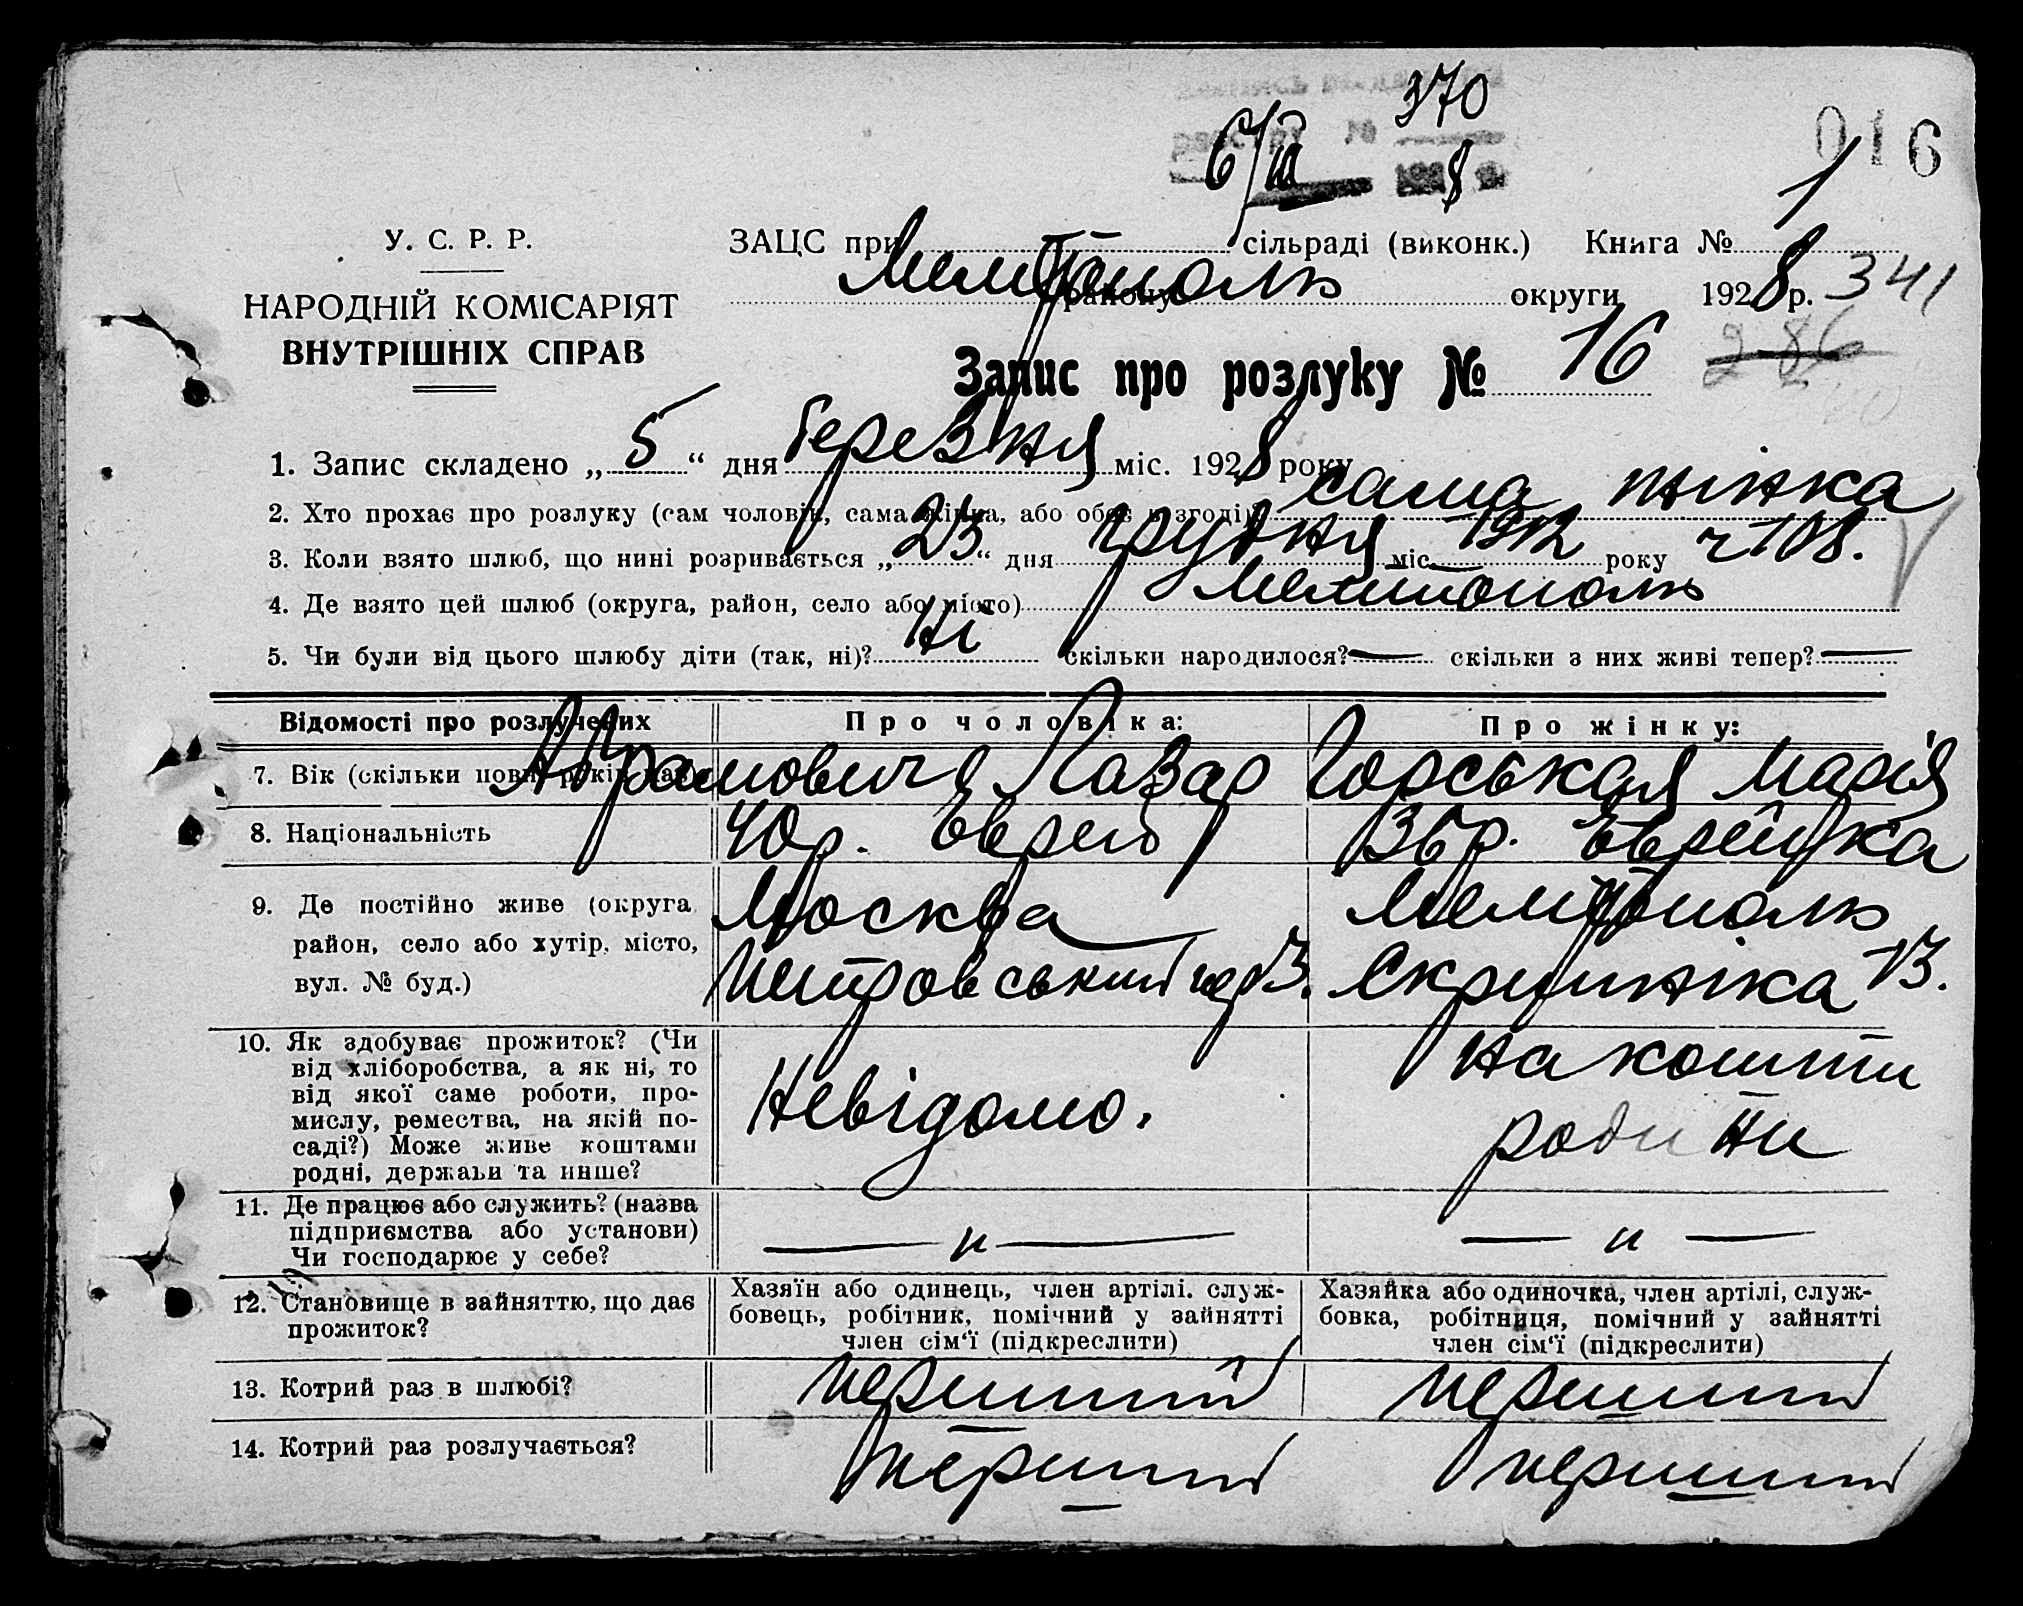 370
6/III 8
016
У. С. Р. Р.
НАРОДНІЙ КОМІСАРІЯТ
ВНУТРІШНІХ СПРАВ
ЗАЦС при сільраді (виконк.) Книга № 1
Мелітополь району округи 1928 р. 341
Запис про розлуку № 16 286
1. Запис складено „ 5 “ дня березня міс. 1928 року
2. Хто прохає про розлуку (сам чоловік, сама жінка, або обоє в згоді) сама жінка
3. Коли взято шлюб, що нині розривається „ 23 “ дня грудня міс. 1912 року ч 108.
4. Де взято цей шлюб (округа, район, село або місто) Мелитополь
5. Чи були від цього шлюбу діти (так, ні)? Ні скільки народилося? — скільки з них живі тепер? —
Відомості про розлучених Про чоловіка: Про жінку:
Абрамович Лазар Горськая Марія
7. Вік (скільки повн. років має)
8. Національність 40р. Еврей 36р. Еврейка
9. Де постійно живе (округа Москва Мелітополь
район, село або хутір, місто, Петровський 13. Скрипніка 13.
вул. № буд.)
10. Як здобуває прожиток? (Чи
від хліборобства, а як ні, то
від якої саме роботи, про-
мислу, ремества, на якій по-
саді?) Може живе коштами
родні, держави та инше?
Невідомо.
на кошти
родини
11. Де працює або служить? (назва
підприємства або установи)
Чи господарює у себе?
— и — — и —
12. Становище в зайняттю, що дає
прожиток?
Хазяїн або одинець, член артілі. служ-
бовець, робітник, помічний у зайнятті
член сім‘ї (підкреслити)
Хазяйка або одиночка, член артілі, служ-
бовка, робітниця, помічний у зайнятті
член сім‘ї (підкреслити)
13. Котрий раз в шлюбі? перший перший
14. Котрий раз розлучається? перший перший